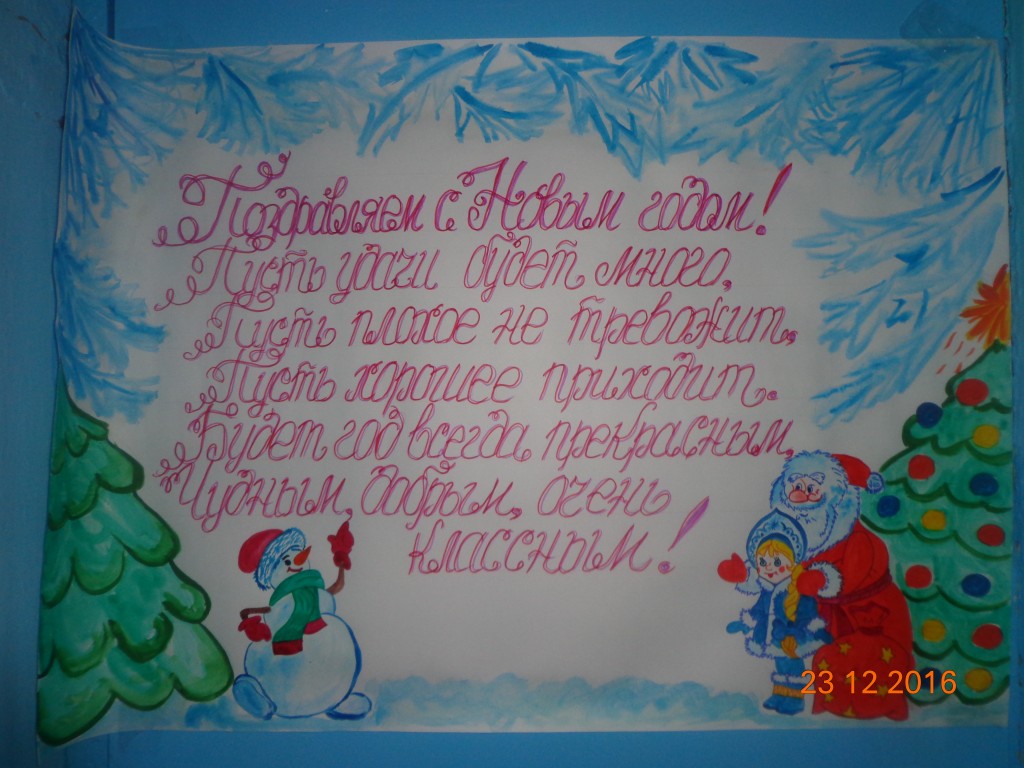 Поздравляем с Новым годом!
Пусть удачи будет много,
Пусть плохое не тревожит,
Пусть хорошее приходит.
Будет год всегда прекрасным,
Чудным, добрым, очень
классным!
23 12 2016